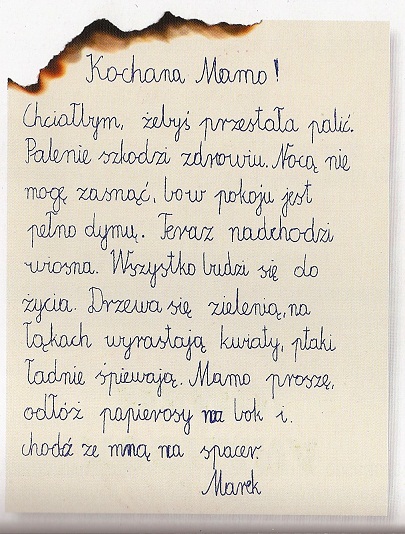 Kochana Mamo!
Chciałbym, żebyś przestała palić.
Palenie szkodzi zdrowiu. Nocą nie
mogę zasnąć, bo w pokoju jest
pełno dymu. Teraz nadchodzi
wiosna. Wszystko budzi się do
życia. Drzewa się zielenią, na
łąkach wyrastają kwiaty, ptaki
ładnie śpiewają. Mamo proszę,
odłóż papierosy na bok i
chodź ze mną na spacer.
Marek